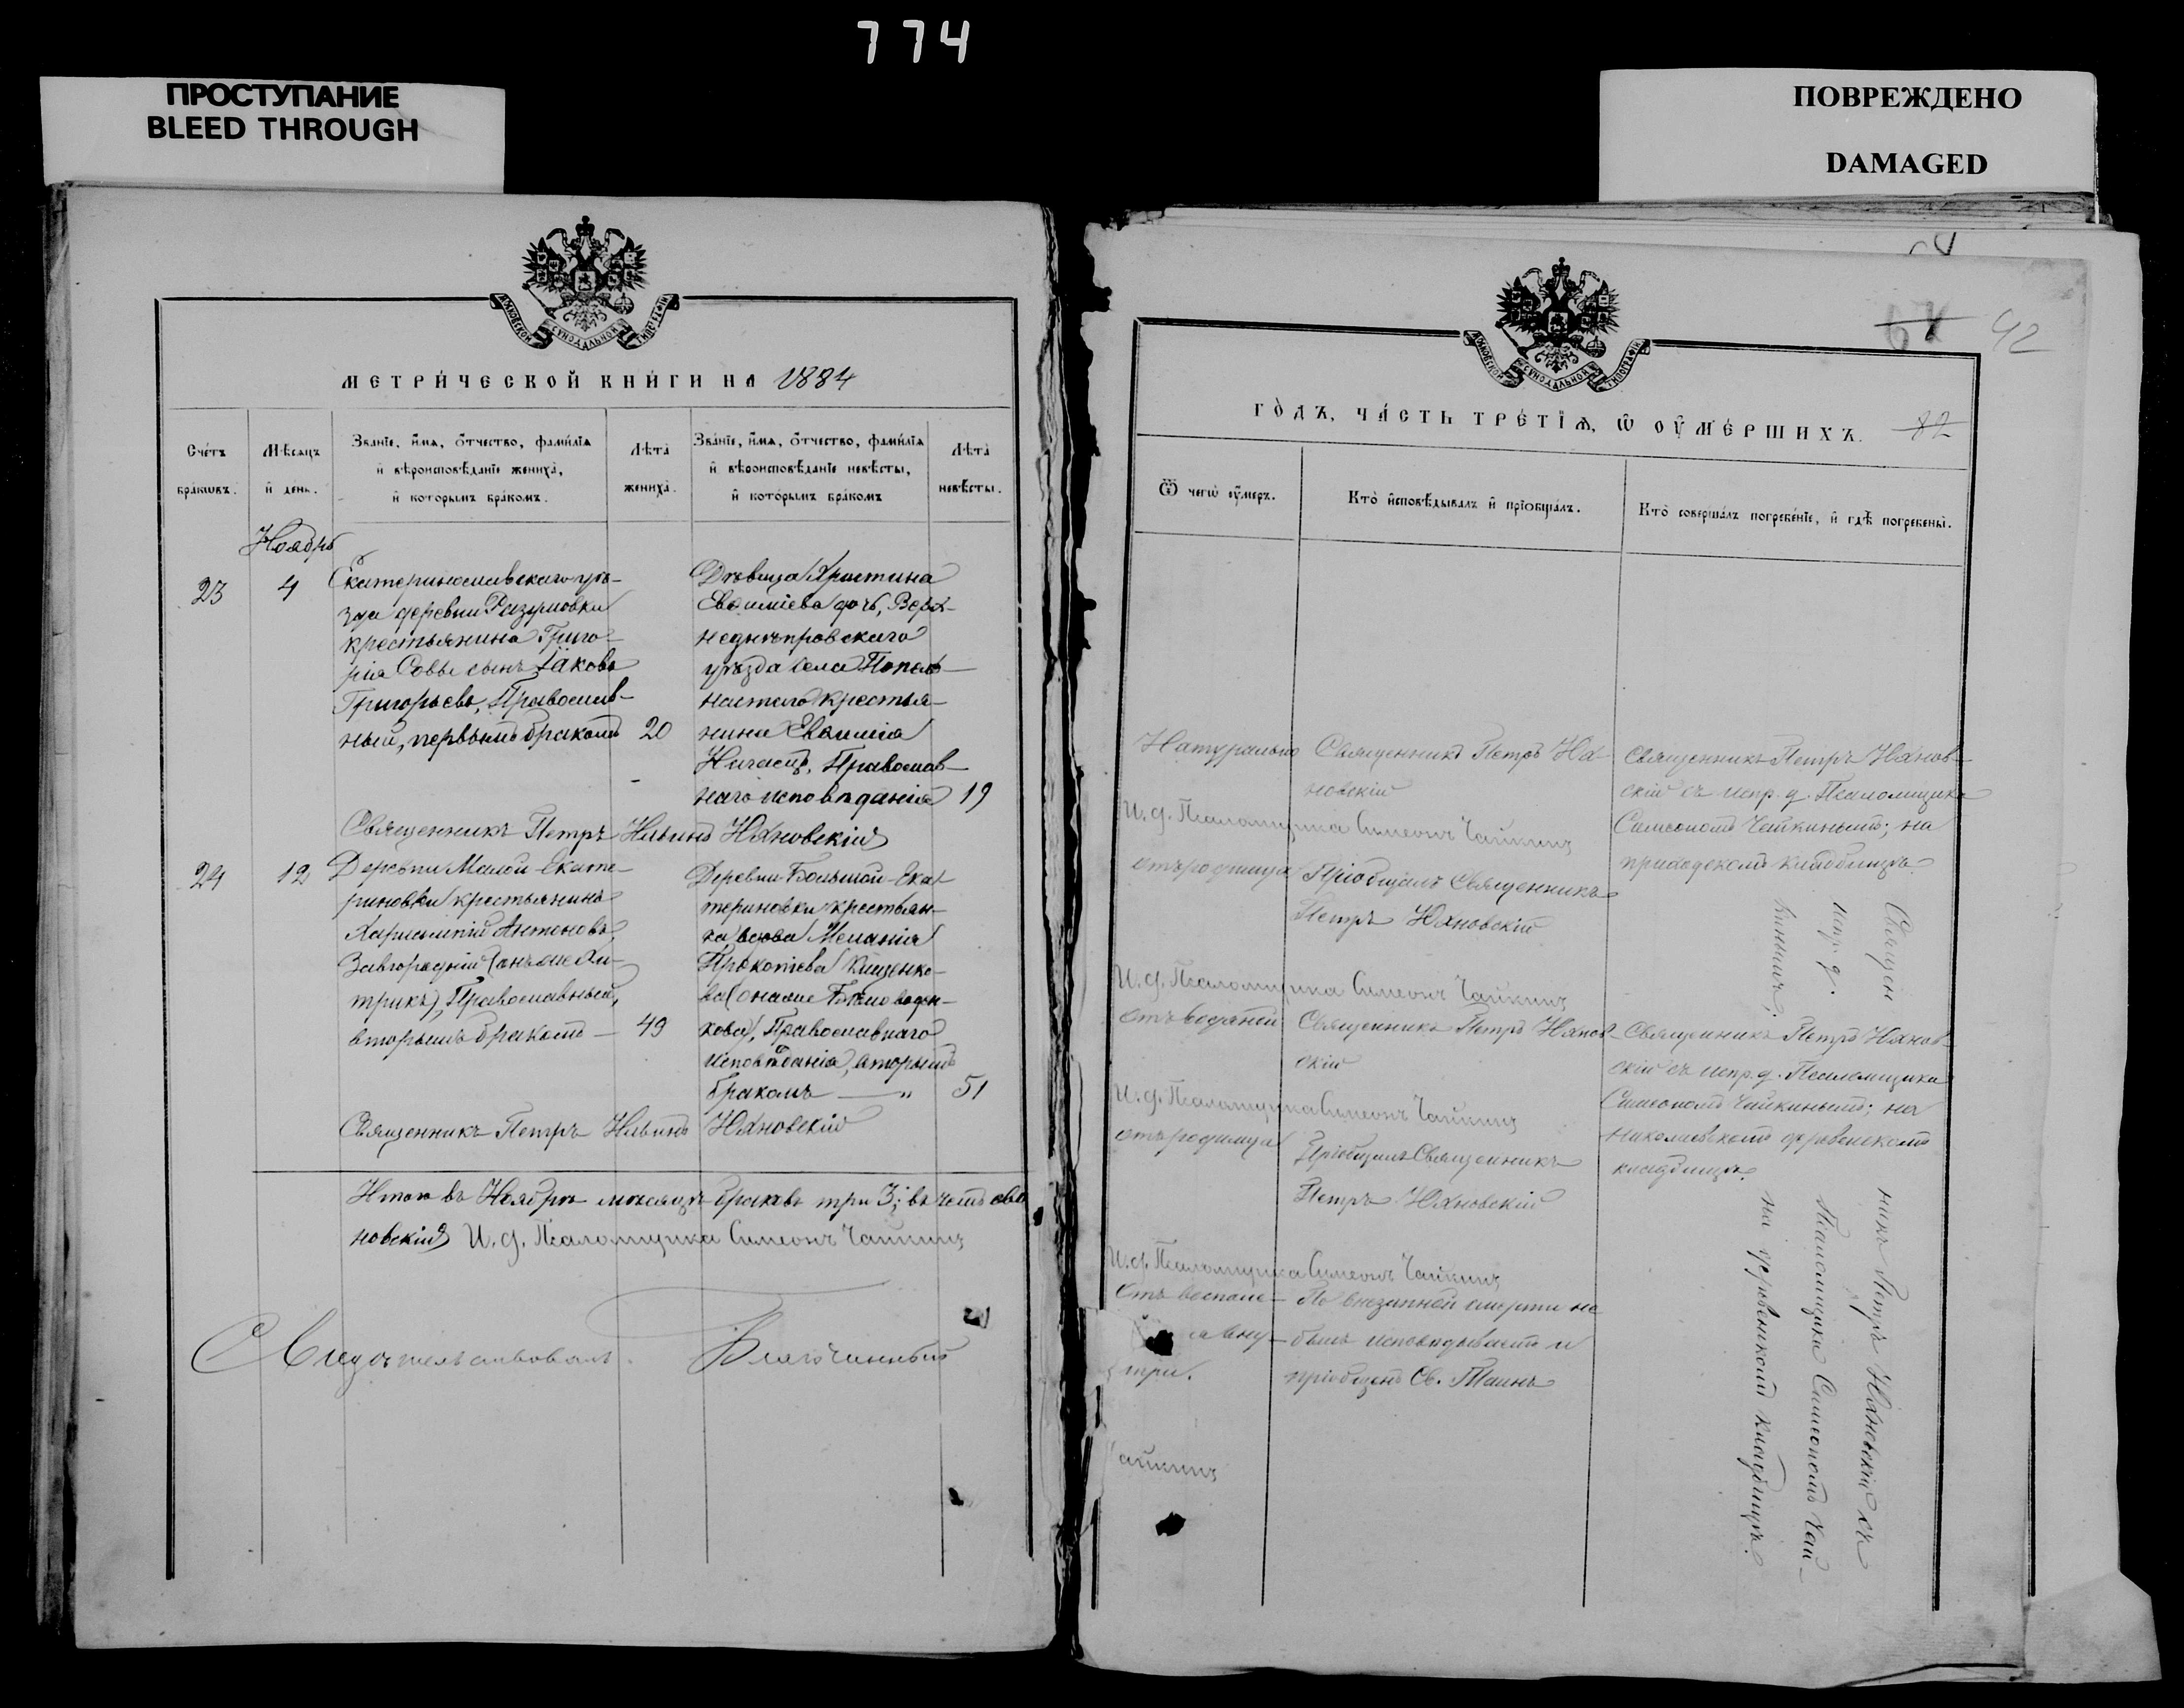 774
ПРОСТУПАНИЕ
BLEED THROUGH
ПОВРЕЖДЕНО
DAMAGED
МЕТРИЧЕСКОЙ КНИГИ НА 1884
Счетъ браковъ.
Мѣсяцъ и день.
Званіе, имя, отчество, фамилія и вѣроисповѣданіе жениха, и которымъ бракомъ.
Лѣта жениха.
Званіе, имя, отчество, фамилія и вѣроисповѣданіе невѣсты, и которымъ бракомъ
Лѣта невѣсты.
Ноябрь
23
4
Екатеринославскаго уѣ-
зда деревни Разумовки
крестьянина Григо-
рія Саввы сынъ Іаковъ
Григорьевъ, Православ-
ный, первымъ бракомъ
20
Дѣвица Христина
Евѳиміева дочь, Верх-
неднѣпровскаго
уѣзда села Попель-
настаго крестья-
нина Евѳимія
Православ-
наго исповѣданія
19
Священникъ Петръ Ильинъ Юхновскій
24
12
Деревни Малой-Екате-
риновки крестьянинъ
Харлампій Антоновъ
Завгородній (онъ же
Православный,
вторымъ бракомъ —
49
Деревни Большой-Ека-
териновки крестьян-
ка вдова Меланія
Прокопіева Клищенко-
ва (она же
кова), Православнаго
исповѣданія, вторымъ
бракомъ — "
51
Священникъ Петръ Ильинъ Юхновскій
Итого въ Ноябрѣ мѣсяцѣ браковъ три 3; въ чемъ
новскій И. д. Псаломщика Симеонъ Чайкинъ
Свидѣтельствовалъ. Благочинный
64
42
82
ГОДЪ, ЧАСТЬ ТРЕТІЯ, Ѿ ОУМЕРШИХЪ.
Ѿ чегѡ оумеръ.
Кто исповѣдывалъ и пріобщалъ.
Кто совершалъ погребеніе, и гдѣ погребены.
Натурально
Священникъ Петръ Юх-
новскій
Священникъ Петръ Юхнов-
скій съ испр. д. Псаломщика
Симеономъ Чайкинымъ; на
приходскомъ кладбищѣ.
И. д. Псаломщика Симеонъ Чайкинъ
отъ родимца
Пріобщалъ Священникъ
Петръ Юхновскій
И. д. Псаломщика Симеонъ Чайкинъ
отъ водяной
Священникъ Петръ Юхнов-
скій
Священникъ Петръ Юхнов-
скій съ испр. д. Псаломщика
Симеономъ Чайкинымъ; на
Николаевскомъ деревенскомъ
кладбищѣ.
И. д. Псаломщика Симеонъ Чайкинъ
отъ родимца
Пріобщалъ Священникъ
Петръ Юхновскій
И. д. Псаломщика Симеонъ Чайкинъ
Отъ воспале-
вну-
три.
По внезапной смерти не
былъ исповѣдываемъ и
пріобщенъ Св. Таинъ
айкинъ
Священникъ Петръ Юхновскій съ
испр. д. Псаломщика Симеономъ Чай-
кинымъ; на деревенскомъ кладбищѣ.